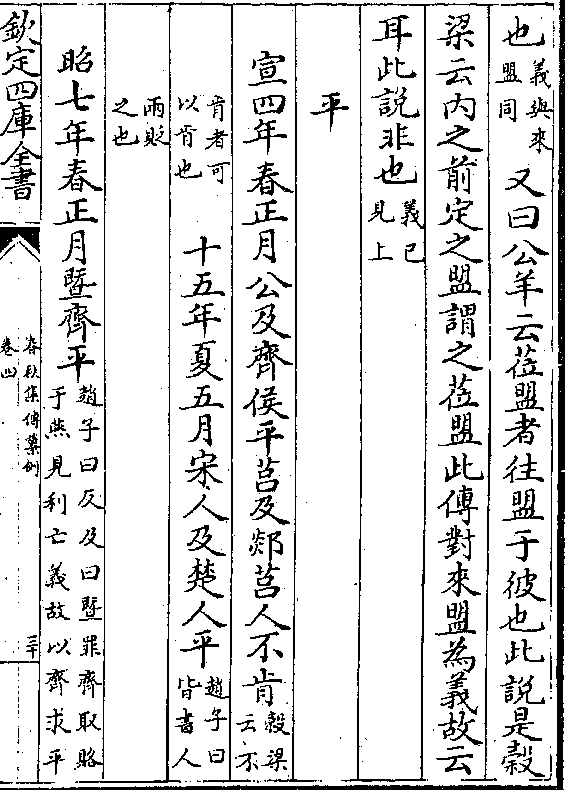 也義與來盟同又曰公羊云莅盟者往盟于彼也此說是穀
梁云內之前定之盟謂之莅盟此傳對來盟為義故云
耳此說非也義已見上
平
宣四年春正月公及齊侯平莒及郯莒人不肯穀梁云不
肯者可以肯也十五年夏五月宋人及楚人平趙子曰皆書人
兩貶之也
昭七年春正月暨齊平趙子曰反及曰暨罪齊取賂于燕見利亡義故以齊求平
欽定四庫全書
春秋集傳纂例
卷四
三十